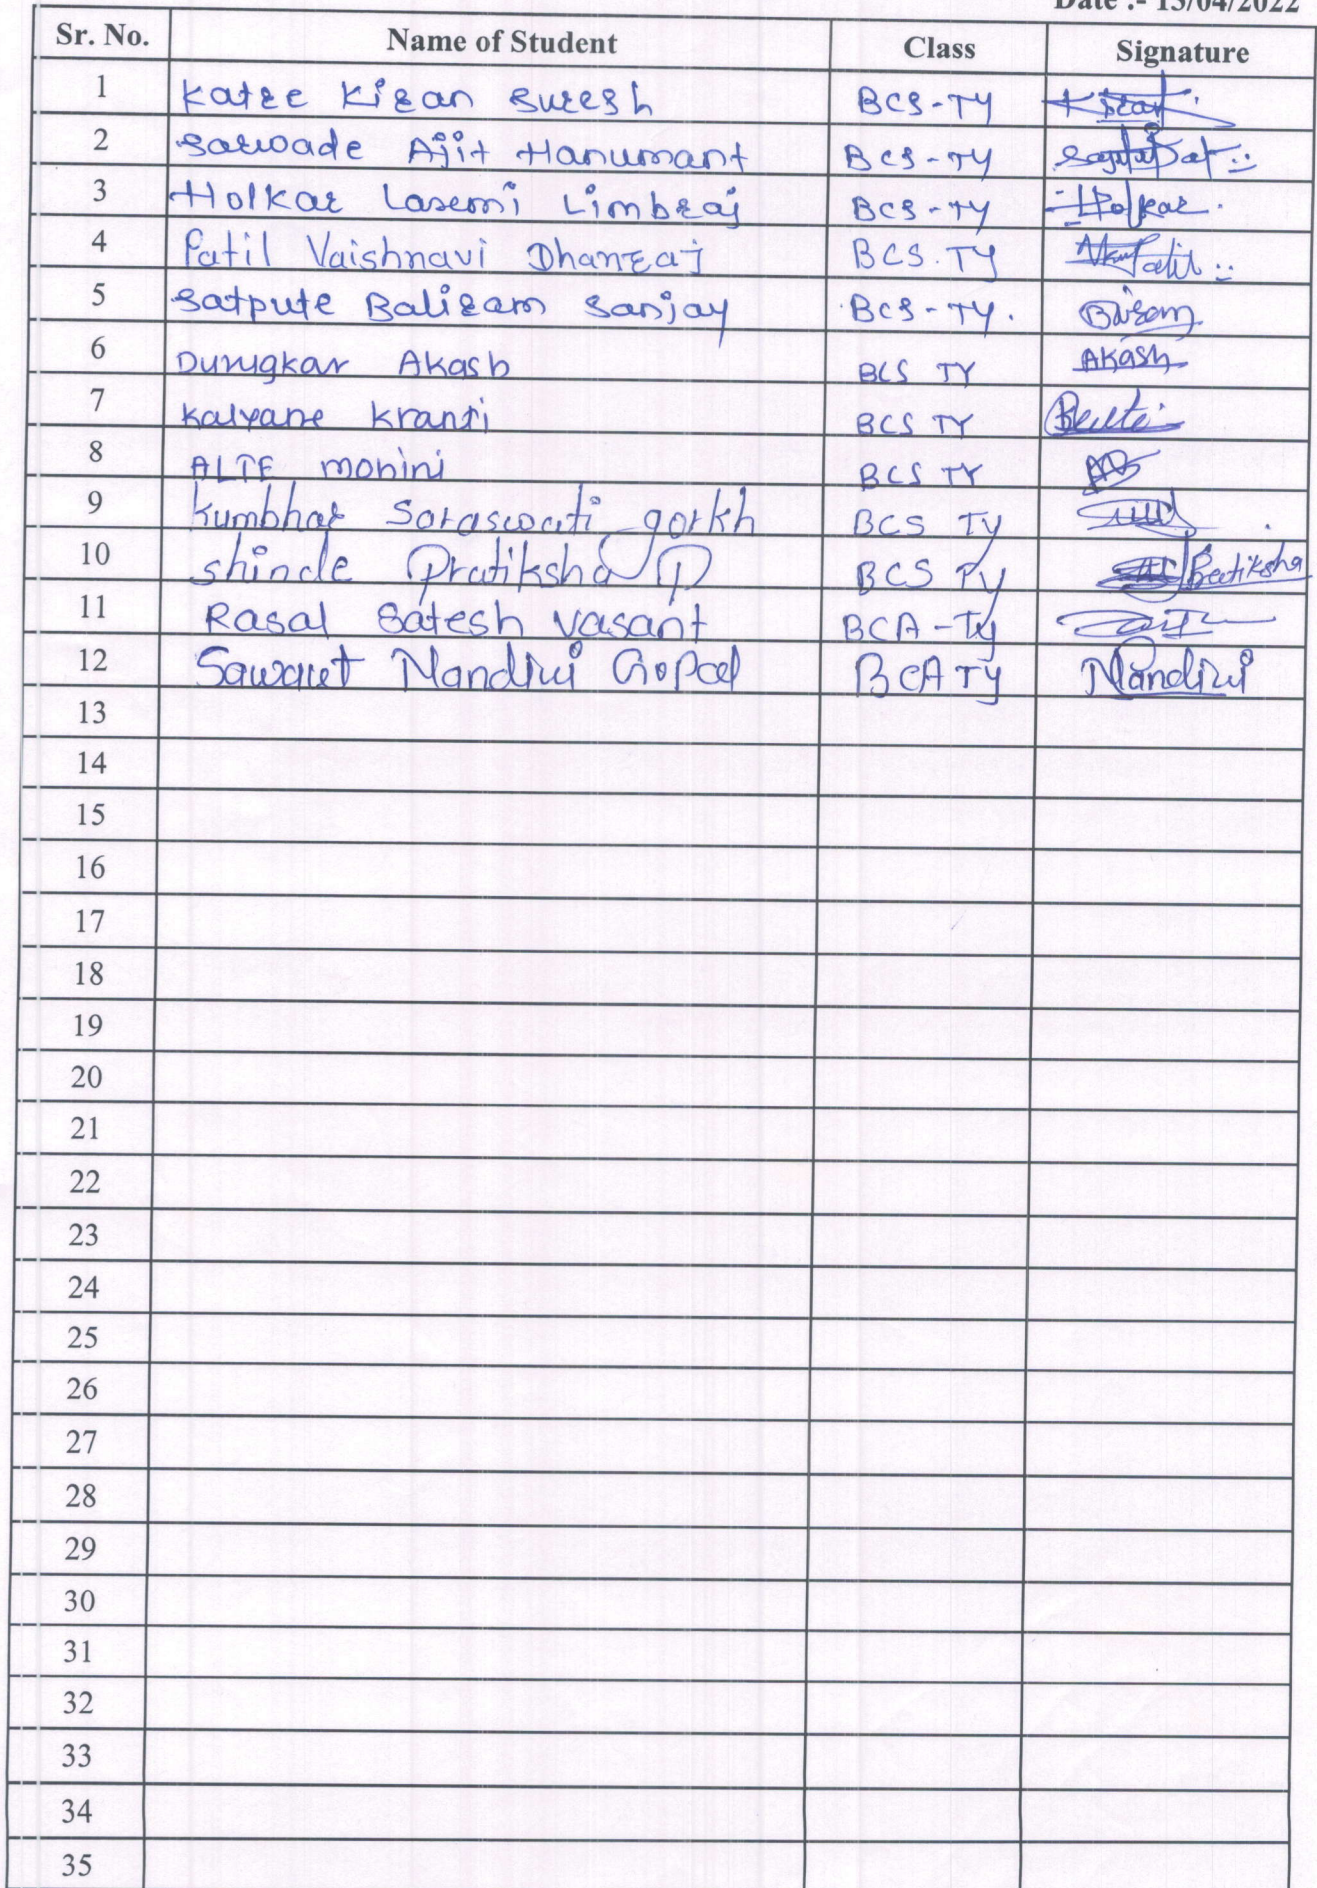 Date :- 13/04/2022
Sr. No. Name of Student Class Signature
1 Katre Kiran Suresh BCS-TY Kiran
2 Sarwade Ajit Hanumant BCS-TY
3 Holkar Laxmi Limbraj BCS-TY Holkar
4 Patil Vaishnavi Dhanraj BCS.TY Patil
5 Satpute Baliram Sanjay BCS-TY.
6 Durugkar Akash BCS TY AKash
7 Kalyane Kranti BCS TY
8 ALTE monini BCS TY
9 Kumbhar Saraswati gorkh BCS Ty
10 shinde Pratiksha D BCS Ty Pratiksha
11 Rasal Satesh vasant BCA-Ty
12 Sawant Nandini Gopal BCA TY Nandini
13
14
15
16
17
18
19
20
21
22
23
24
25
26
27
28
29
30
31
32
33
34
35